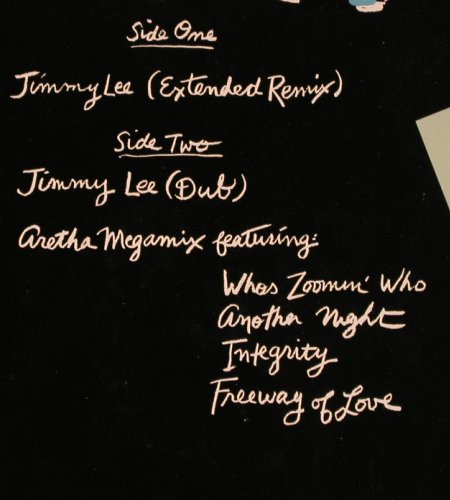 Side One
Jimmy Lee (Extended Remix)
Side Two
Jimmy Lee (Dub)
Aretha Megamix featuring:
Whos Zoomin' Who
Another Night
Integrity
Freeway of Love